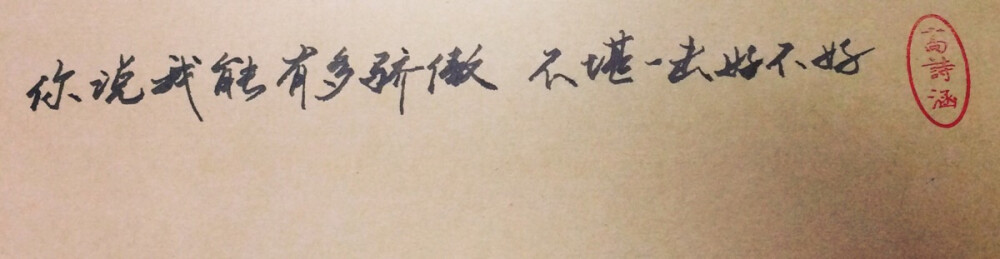 你说我能有多骄傲 不堪一击好不好
高詩涵